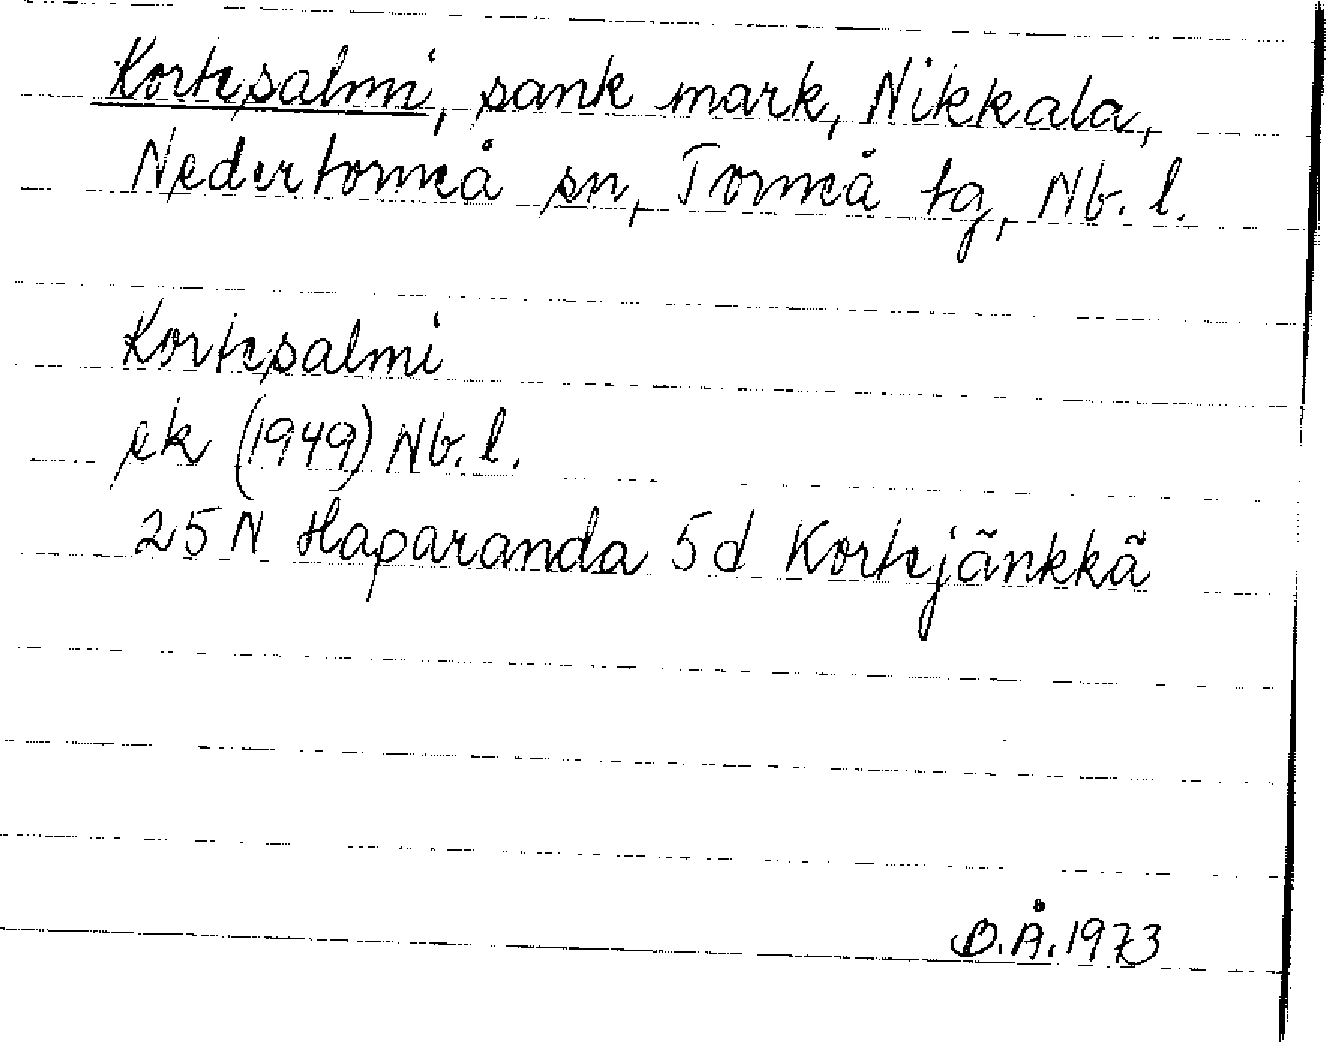 Kortesalmi, sank mark, Nikkala,
Nedertorneå sn, Torneå tg, Nb. l.
Kortesalmi
ek (1949) Nb. l.
25 N Haparanda 5d Kortejänkkä
D.Å. 1973